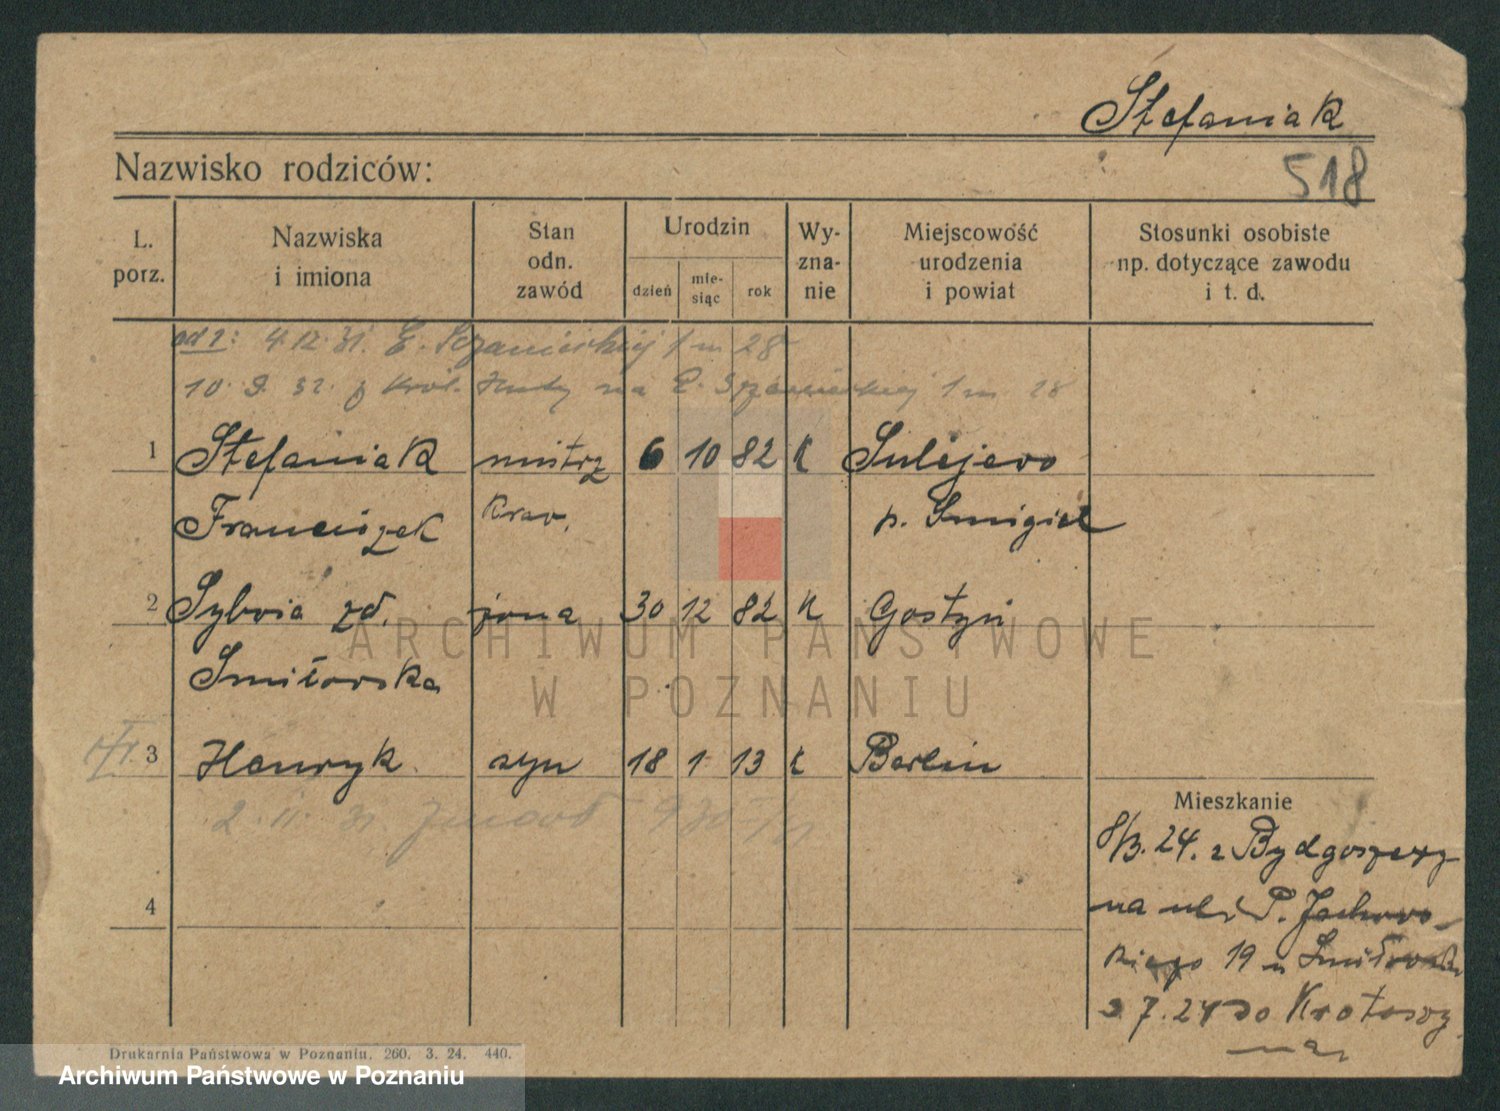 Stefaniak
Nazwisko rodziców:
518
L. porz.
Nazwiska i imiona
Stan odn. zawód
Urodzin
dzień
mie-siąc
rok
Wy-zna-nie
Miejscowość urodzenia i powiat
Stosunki osobiste np. dotyczące zawodu i t. d.
4.12.31. E. Sczanieckiej 1 m 28
10. 9. 32. z Król. Huty na E. Sczanieckiej 1 m 28
1 Stefaniak mistrz 6 10 82 K Sulejewo
Franciszek kraw. p. Śmigiel
2 Sylwia zd. żona 30 12 82 K Gostyń
Smiłowska
3 Henryk syn 18 1 13 K Berlin
2. 11. 31.
Mieszkanie
8/3. 24. z Bydgoszczy
na ul. P. Jackow-
skiego 19 u
7. 24 do Krotoszy
na
4
ARCHIWUM PAŃSTWOWE
W POZNANIU
Drukarnia Państwowa w Poznaniu. 260. 3. 24. 440.
Archiwum Państwowe w Poznaniu